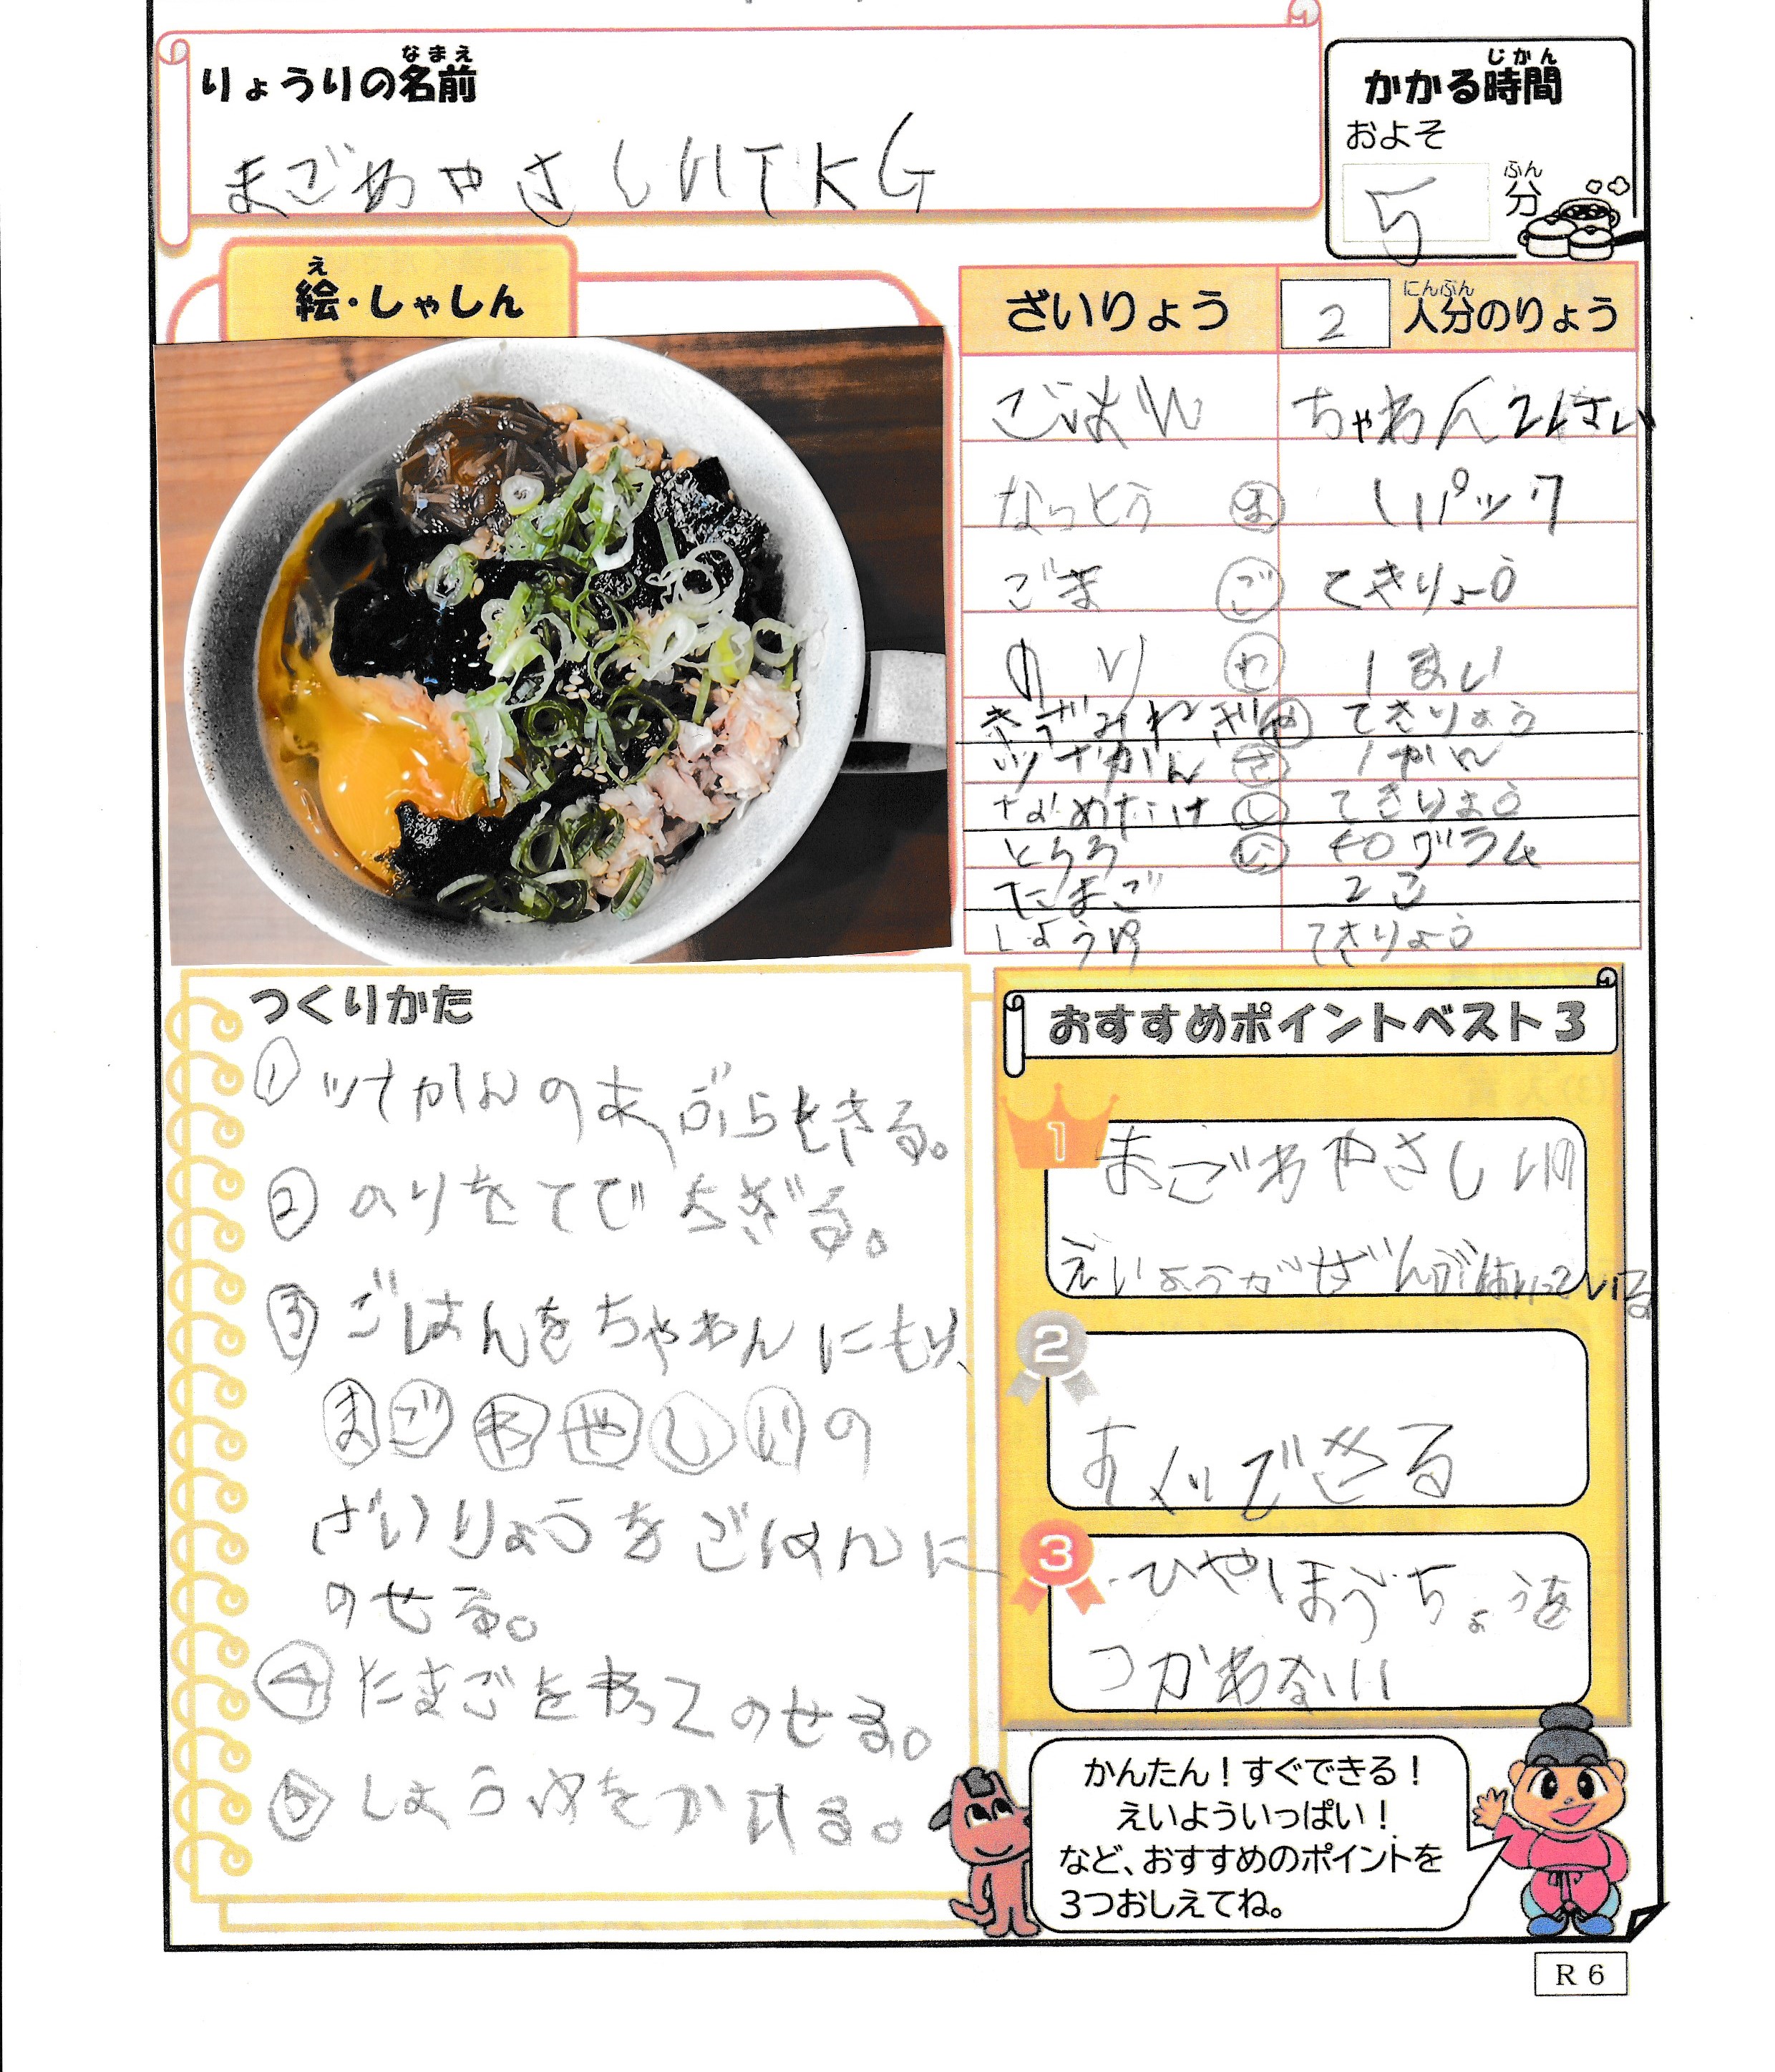 りょうりの名前
なまえ
まごわやさしいTKG
かかる時間
じかん
およそ
5
分
ふん
絵・しゃしん
え
ざいりょう
2
人分のりょう
にんぶん
ごはん ちゃわん2はい
なっとう ま 1パック
ごま ご てきりょう
のり わ 1まい
きざみねぎ や てきりょう
ツナかん さ 1かん
なめたけ し てきりょう
とろろ い 40グラム
たまご 2こ
しょうゆ てきりょう
つくりかた
① ツナかんのあぶらをきる。
② のりをてでちぎる。
③ ごはんをちゃわんにもり、
まごわやしいの
ざいりょうをごはんに
のせる。
④ たまごをわってのせる。
⑤ しょうゆをかける。
おすすめポイントベスト3
1
まごわやさしいの
えいようがぜんぶはいっている
2
すぐできる
3
ひやほうちょうを
つかわない
かんたん！すぐできる！
えいよういっぱい！
など、おすすめのポイントを
3つおしえてね。
R6